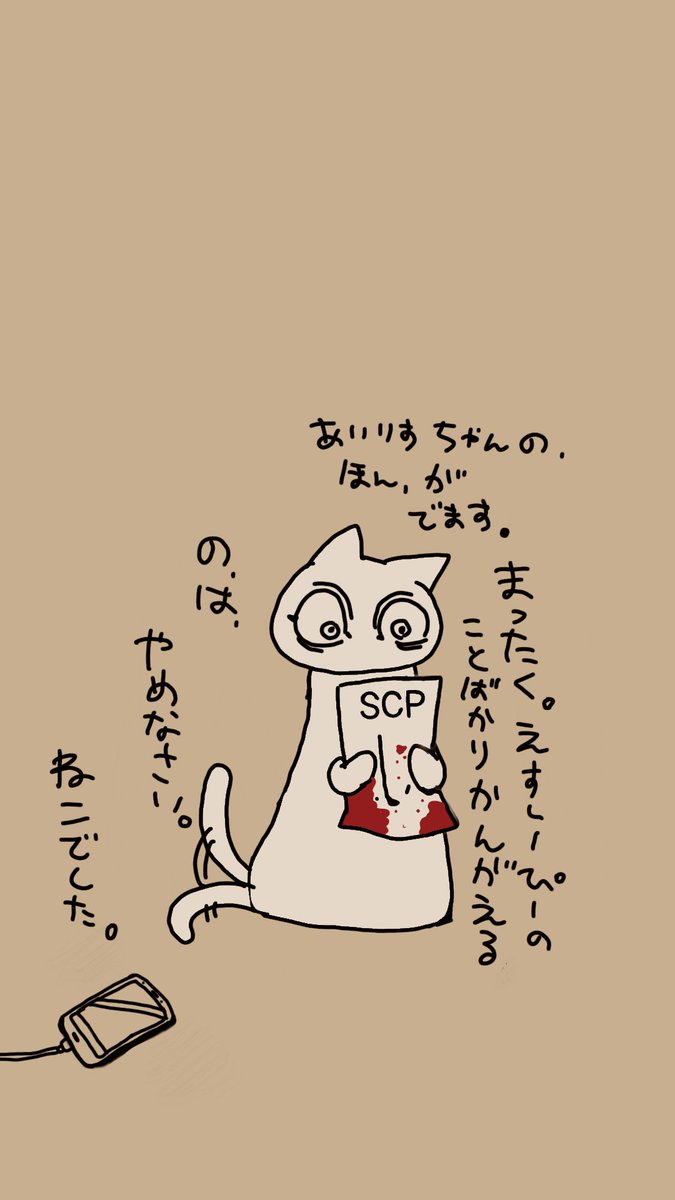 あいりすちゃんの、
ほん、が
でます。
まったく。えすしーぴーの
ことばかりかんがえる
の、は、
やめなさい。
ねこでした。
SCP